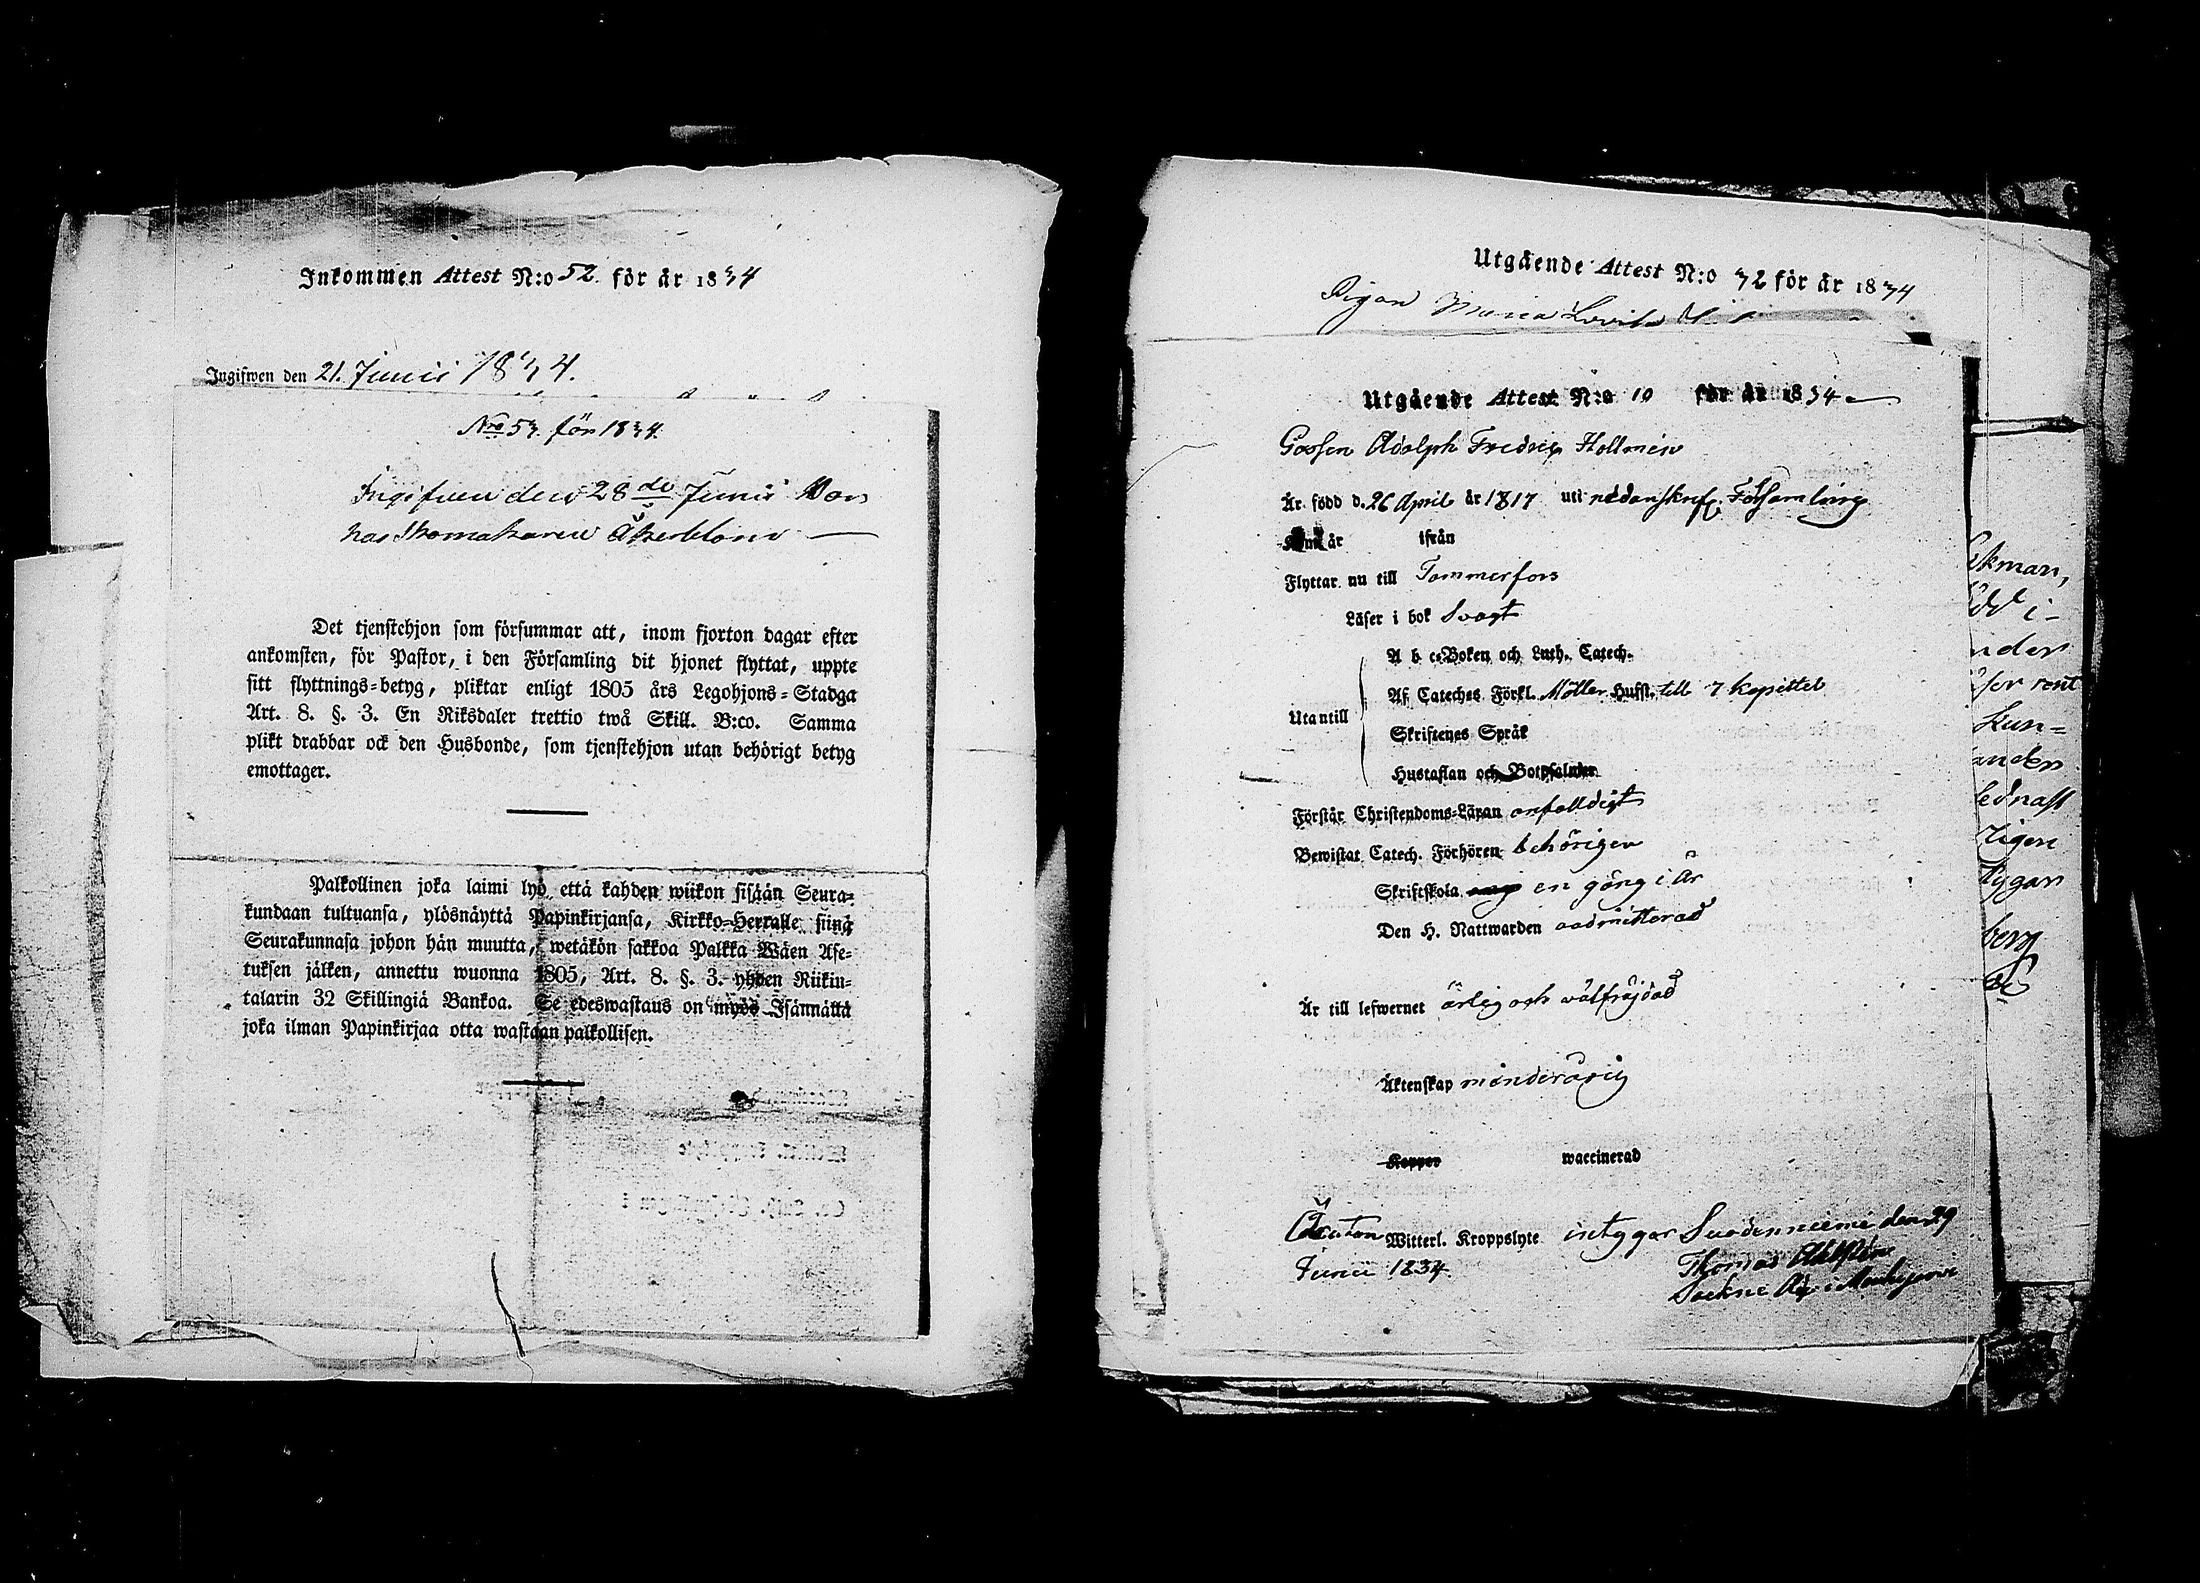 Inkommen Attest N:o 52 för år 1834
Ingifwen den 21. Junii 1834.
Nro 53. för 1834.
Ingifven den 28de Junii
hos Skomakaren Åkerblom
Det tjenstehjon som försummar att, inom fjorton dagar efter
ankomsten, för Pastor, i den Församling dit hjonet flyttat, uppte
sitt flyttnings=betyg, pliktar enligt 1805 års Legohjons=Stadga
Art. 8. §. 3. En Riksdaler trettio twå Skill. B:co. Samma
plikt drabbar ock den Husbonde, som tjenstehjon utan behörigt betyg
emottager.
Palkollinen joka laimi lyö, että kahden wiikon sisään Seura=
kundaan tultuansa, ylösnäyttä Papinkirjansa, Kirkko=Herralle siinä
Seurakunnasa johon hän muutta, wetäkön sakkoa Palkka Wäen Ase=
tuksen jälken, annettu wuonna 1805, Art. 8. §. 3. yhden Riikin=
talarin 32 Skillingiä Bankoa. Se edeswastaus on myös Isännällä
joka ilman Papinkirjaa otta wastaan palkollisen.
Utgående Attest N:o 32 för år 1834
Pigan Maria Lovisa
Utgående Attest N:o 10 för år 1834
Gossen Adolph Fredric Hollmén
Är född d. 26 April år 1817 uti nedanskrefne Församling
år ifrån
Flyttar nu till Tammerfors
Läser i bok Svagt
A b c=Boken och Luth. Catech.
Af Cateches Förkl. Möller Hufst. till 7 kapittel
Utantill
Skriftenes Språk
Hustaflan och Botpsalmer
Förstår Christendoms=Läran enfaldigt
Bewistat Catech. Förhören behörigen
Skriftskola en gång i År
Den H. Nattwarden oadmitterad
Är till lefwernet ärlig och välfräjdad
Äktenskap minderårig
Koppor waccinerad
Witterl. Kroppslyte intygar Suodenniemi den 29
Junii 1834.
Thomas
Ekman,
i
nder
Kun=
anden
berg